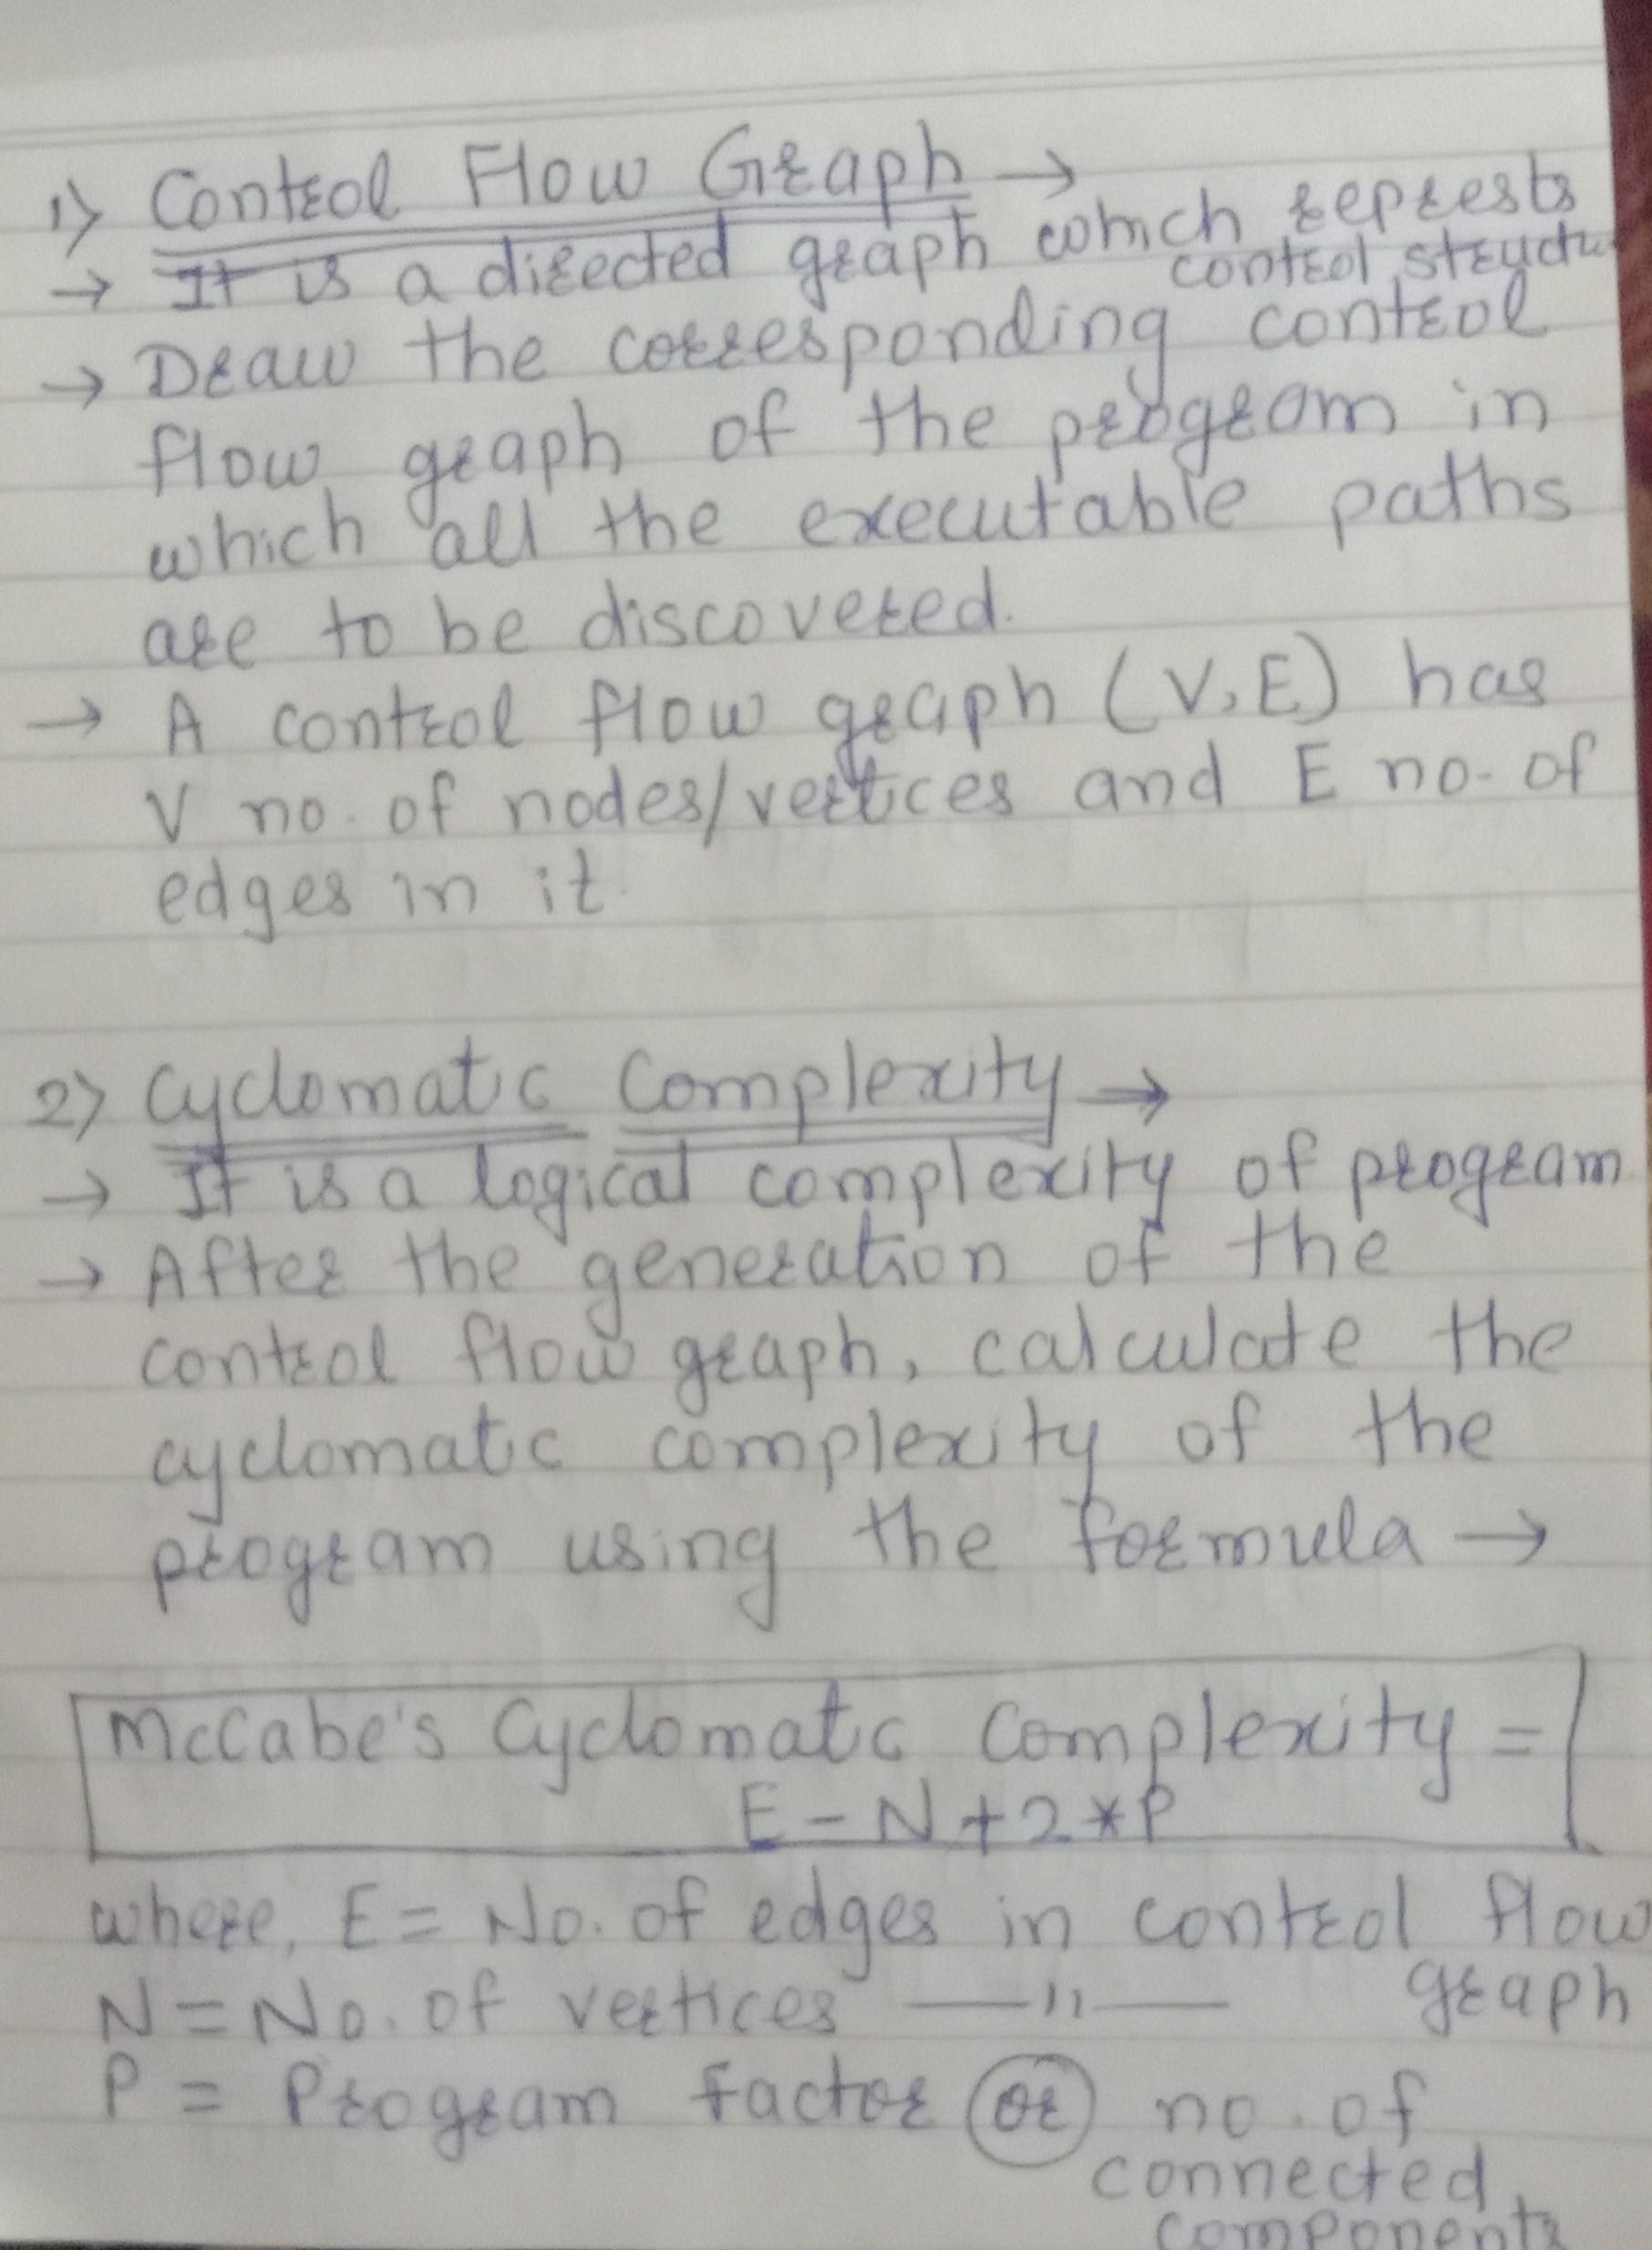 1) Control Flow Graph →
→ It is a directed graph which represts
control structu
→ Draw the corresponding control
flow graph of the program in
which all the executable paths
are to be discovered.
→ A control flow graph (V, E) has
V no. of nodes/vertices and E no. of
edges in it.
2) Cyclomatic Complexity →
→ It is a logical complexity of program
→ After the generation of the
control flow graph, calculate the
cyclomatic complexity of the
program using the formula →
McCabe's Cyclomatic Complexity =
E - N + 2 * P
where, E = No. of edges in control flow
graph
N = No. of vertices —〃—
P = Program factor or no. of
connected
components